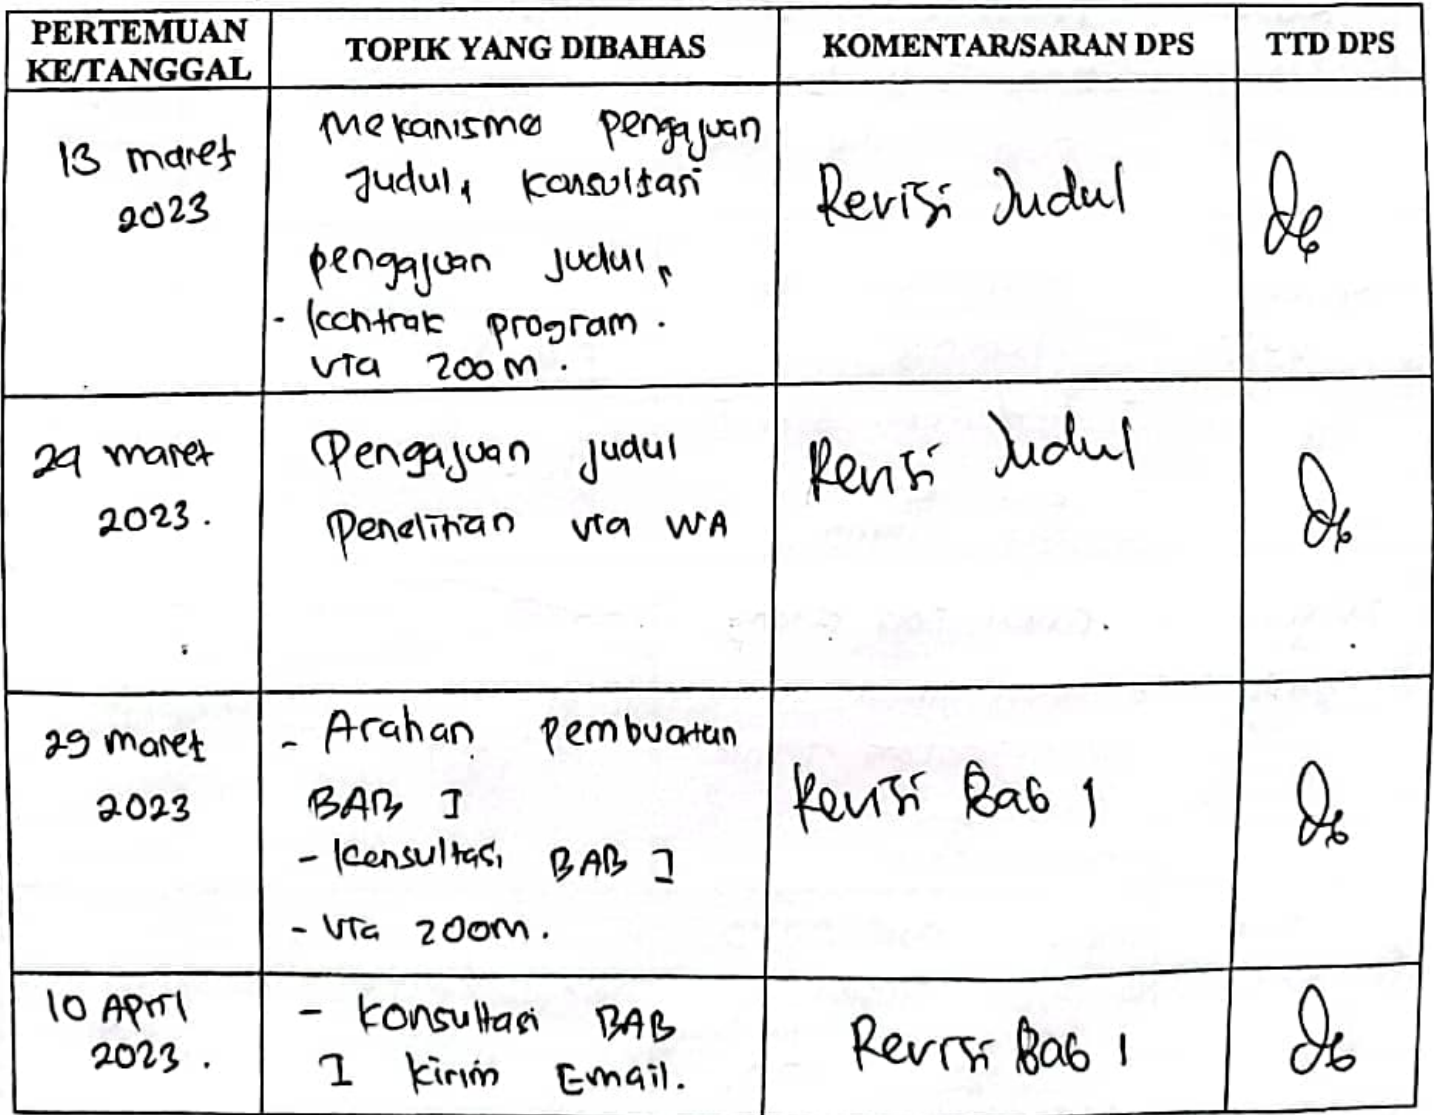 PERTEMUAN
KE/TANGGAL
TOPIK YANG DIBAHAS
KOMENTAR/SARAN DPS
TTD DPS
13 maret
2023
Mekanisme pengajuan
Judul, Konsultasi
pengajuan Judul,
- kontrak program.
via zoom.
Revisi Judul
maret
2023.
Pengajuan Judul
Penelitian via WA
Revisi Judul
29 maret
2023
- Arahan pembuatan
BAB I
- Konsultasi BAB I
- via zoom.
Revisi Bab 1
10 April
2023.
- Konsultasi BAB
I kirim Email.
Revisi Bab 1